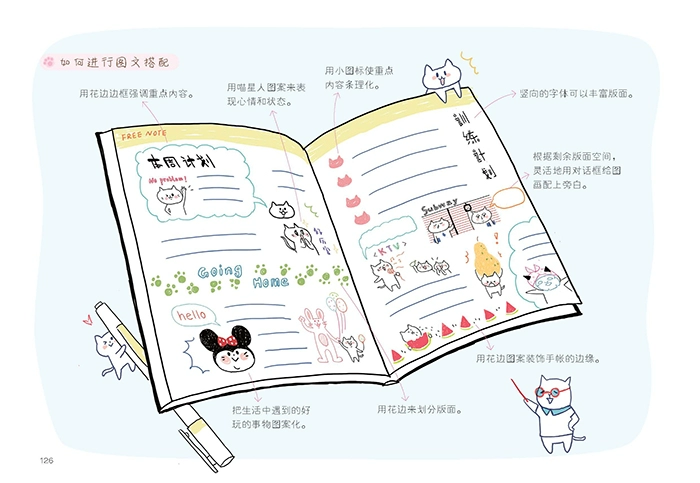 如何进行图文搭配
用花边边框强调重点内容。
用喵星人图案来表
现心情和状态。
用小图标使重点
内容条理化。
竖向的字体可以丰富版面。
根据剩余版面空间,
灵活地用对话框给图
画配上旁白。
FREE NOTE
本周计划
No problem!
好厉害
Going
Home
hello
訓練計劃
Subway
<KTV>
用花边图案装饰手帐的边缘。
把生活中遇到的好
玩的事物图案化。
用花边来划分版面。
126